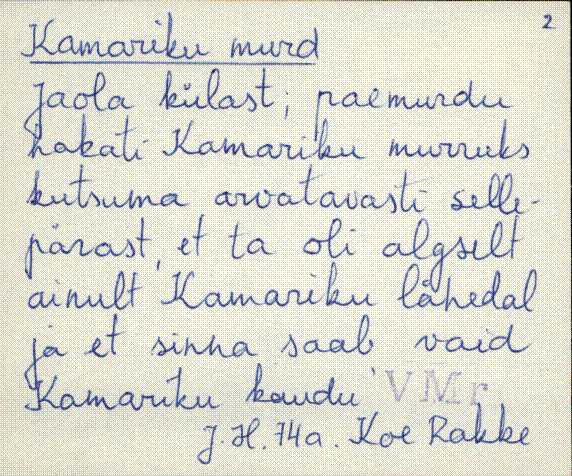 2
Kamariku murd
Jaola külast; paemurdu
hakati Kamariku murruks
kutsuma arvatavasti selle-
pärast, et ta oli algselt
ainult Kamariku lähedal
ja et sinna saab vaid
Kamariku kaudu VMr
J. H. 74a. Koe Rakke